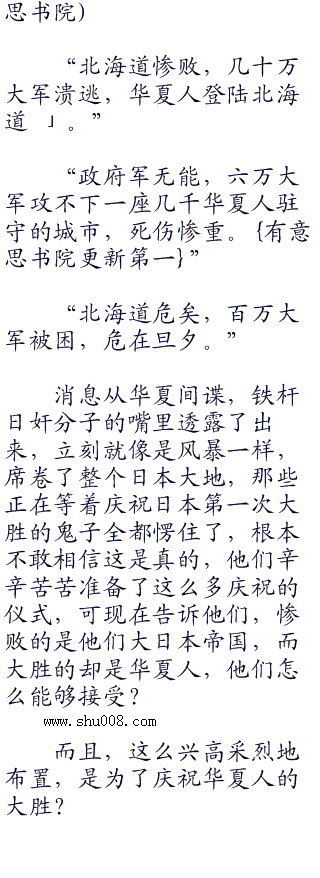 思书院)
“北海道惨败，几十万
大军溃逃，华夏人登陆北海
道 」。”
“政府军无能，六万大
军攻不下一座几千华夏人驻
守的城市，死伤惨重。{有意
思书院更新第一}”
“北海道危矣，百万大
军被困，危在旦夕。”
消息从华夏间谍，铁杆
日奸分子的嘴里透露了出
来，立刻就像是风暴一样，
席卷了整个日本大地，那些
正在等着庆祝日本第一次大
胜的鬼子全都愣住了，根本
不敢相信这是真的，他们辛
辛苦苦准备了这么多庆祝的
仪式，可现在告诉他们，惨
败的是他们大日本帝国，而
大胜的却是华夏人，他们怎
么能够接受？
www.shu008.com
而且，这么兴高采烈地
布置，是为了庆祝华夏人的
大胜？